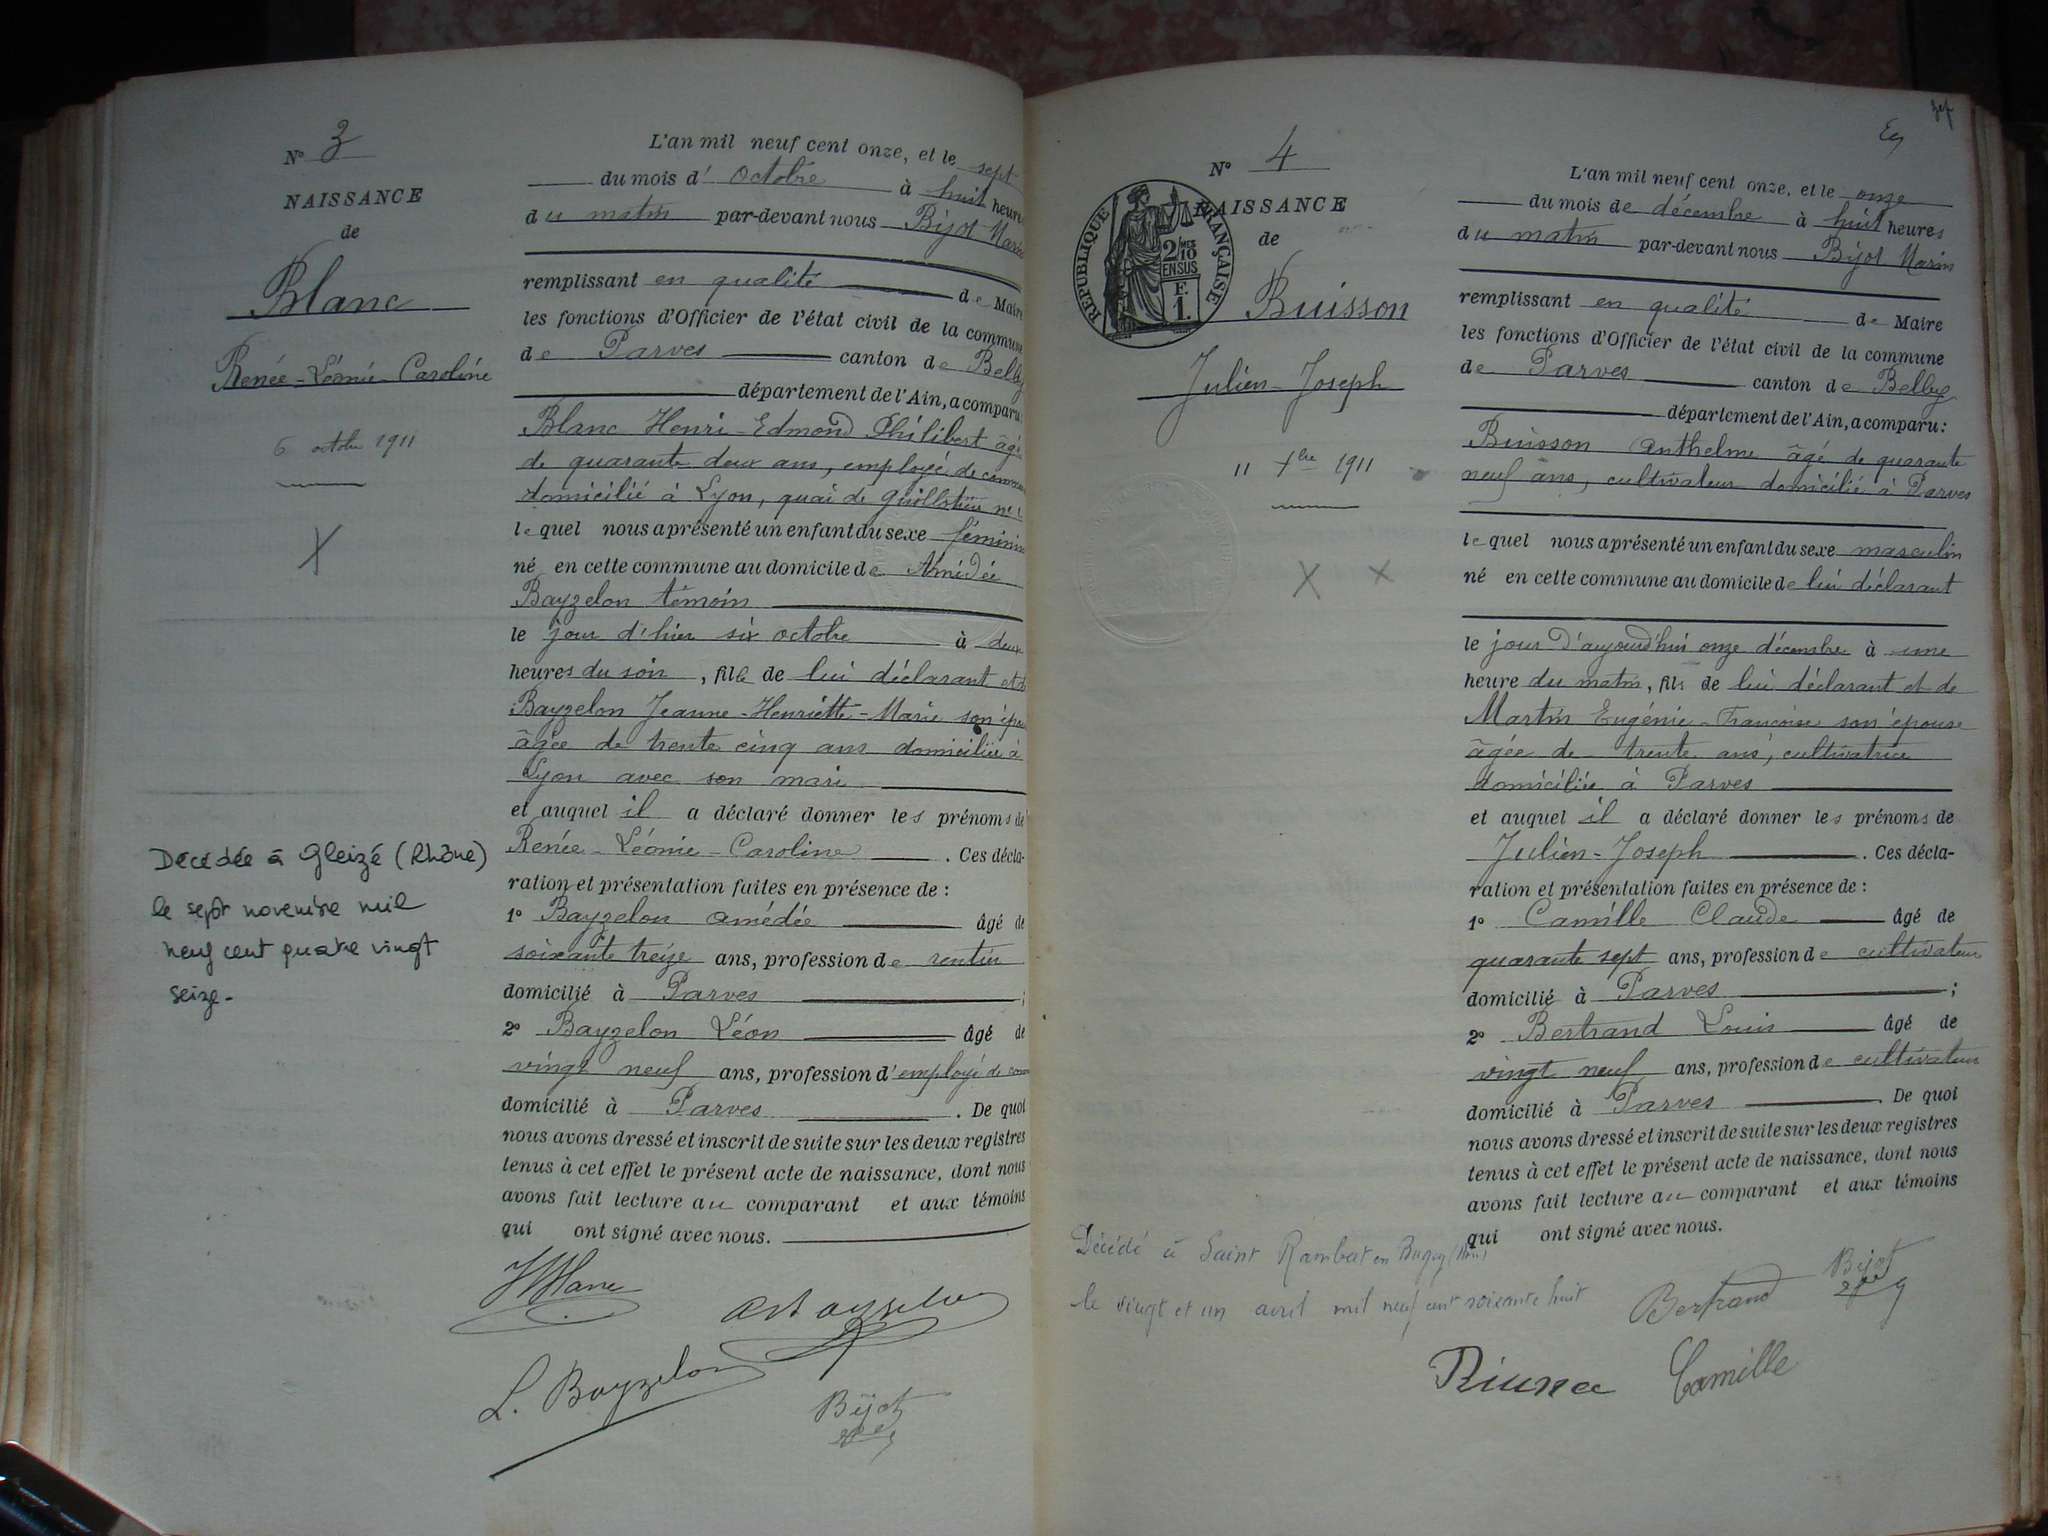 N° 3
NAISSANCE
de
Blanc
Renée-Léonie-Caroline
6 octobre 1911
X
Décédée à Gleizé (Rhône)
le sept novembre mil
neuf cent quatre vingt
seize-
L'an mil neuf cent onze, et le sept
du mois d'octobre à huit heures
du matin par-devant nous Bijot Marin
remplissant en qualité de Maire
les fonctions d'Officier de l'état civil de la commune
de Parves canton de Belley
département de l'Ain, a comparu:
Blanc Henri-Edmond Philibert âgé
de quarante deux ans, employé de commerce
domicilié à Lyon, quai de
lequel nous a présenté un enfant du sexe féminin
né en cette commune au domicile de Amédée
Bayzelon témoin
le jour d'hier six octobre à deux
heures du soir, fille de lui déclarant et de
Bayzelon Jeanne-Henriette-Marie son épouse
âgée de trente cinq ans domiciliée à
Lyon avec son mari
et auquel il a déclaré donner les prénoms de
Renée-Léonie-Caroline. Ces décla-
ration et présentation faites en présence de:
1° Bayzelon Amédée âgé de
soixante treize ans, profession de rentier
domicilié à Parves;
2° Bayzelon Léon âgé de
vingt neuf ans, profession d'employé de com
domicilié à Parves. De quoi
nous avons dressé et inscrit de suite sur les deux registres
tenus à cet effet le présent acte de naissance, dont nous
avons fait lecture au comparant et aux témoins
qui ont signé avec nous.
HBlanc
L. Bayzelon
Bijot
N° 4
NAISSANCE
de
RÉPUBLIQUE FRANÇAISE
2/10 MES
EN SUS
F.
1.
Buisson
Julien-Joseph
11 Xbre 1911
X X
Décédé à Saint Rambert en Bugey (Ain)
le vingt et un avril mil neuf cent soixante huit
L'an mil neuf cent onze, et le onze
du mois de décembre à huit heures
du matin par-devant nous Bijot Marin
remplissant en qualité de Maire
les fonctions d'Officier de l'état civil de la commune
de Parves canton de Belley
département de l'Ain, a comparu:
Buisson Anthelme âgé de quarante
neuf ans, cultivateur domicilié à Parves
lequel nous a présenté un enfant du sexe masculin
né en cette commune au domicile de lui déclarant
le jour d'aujourd'hui onze décembre à une
heure du matin, fils de lui déclarant et de
Martin Eugénie-Françoise son épouse
âgée de trente ans, cultivatrice
domiciliée à Parves
et auquel il a déclaré donner les prénoms de
Julien-Joseph. Ces décla-
ration et présentation faites en présence de:
1° Camille Claude âgé de
quarante sept ans, profession de cultivateur
domicilié à Parves;
2° Bertrand Louis âgé de
vingt neuf ans, profession de cultivateur
domicilié à Parves. De quoi
nous avons dressé et inscrit de suite sur les deux registres
tenus à cet effet le présent acte de naissance, dont nous
avons fait lecture au comparant et aux témoins
qui ont signé avec nous.
Bertrand Bijot
Camille